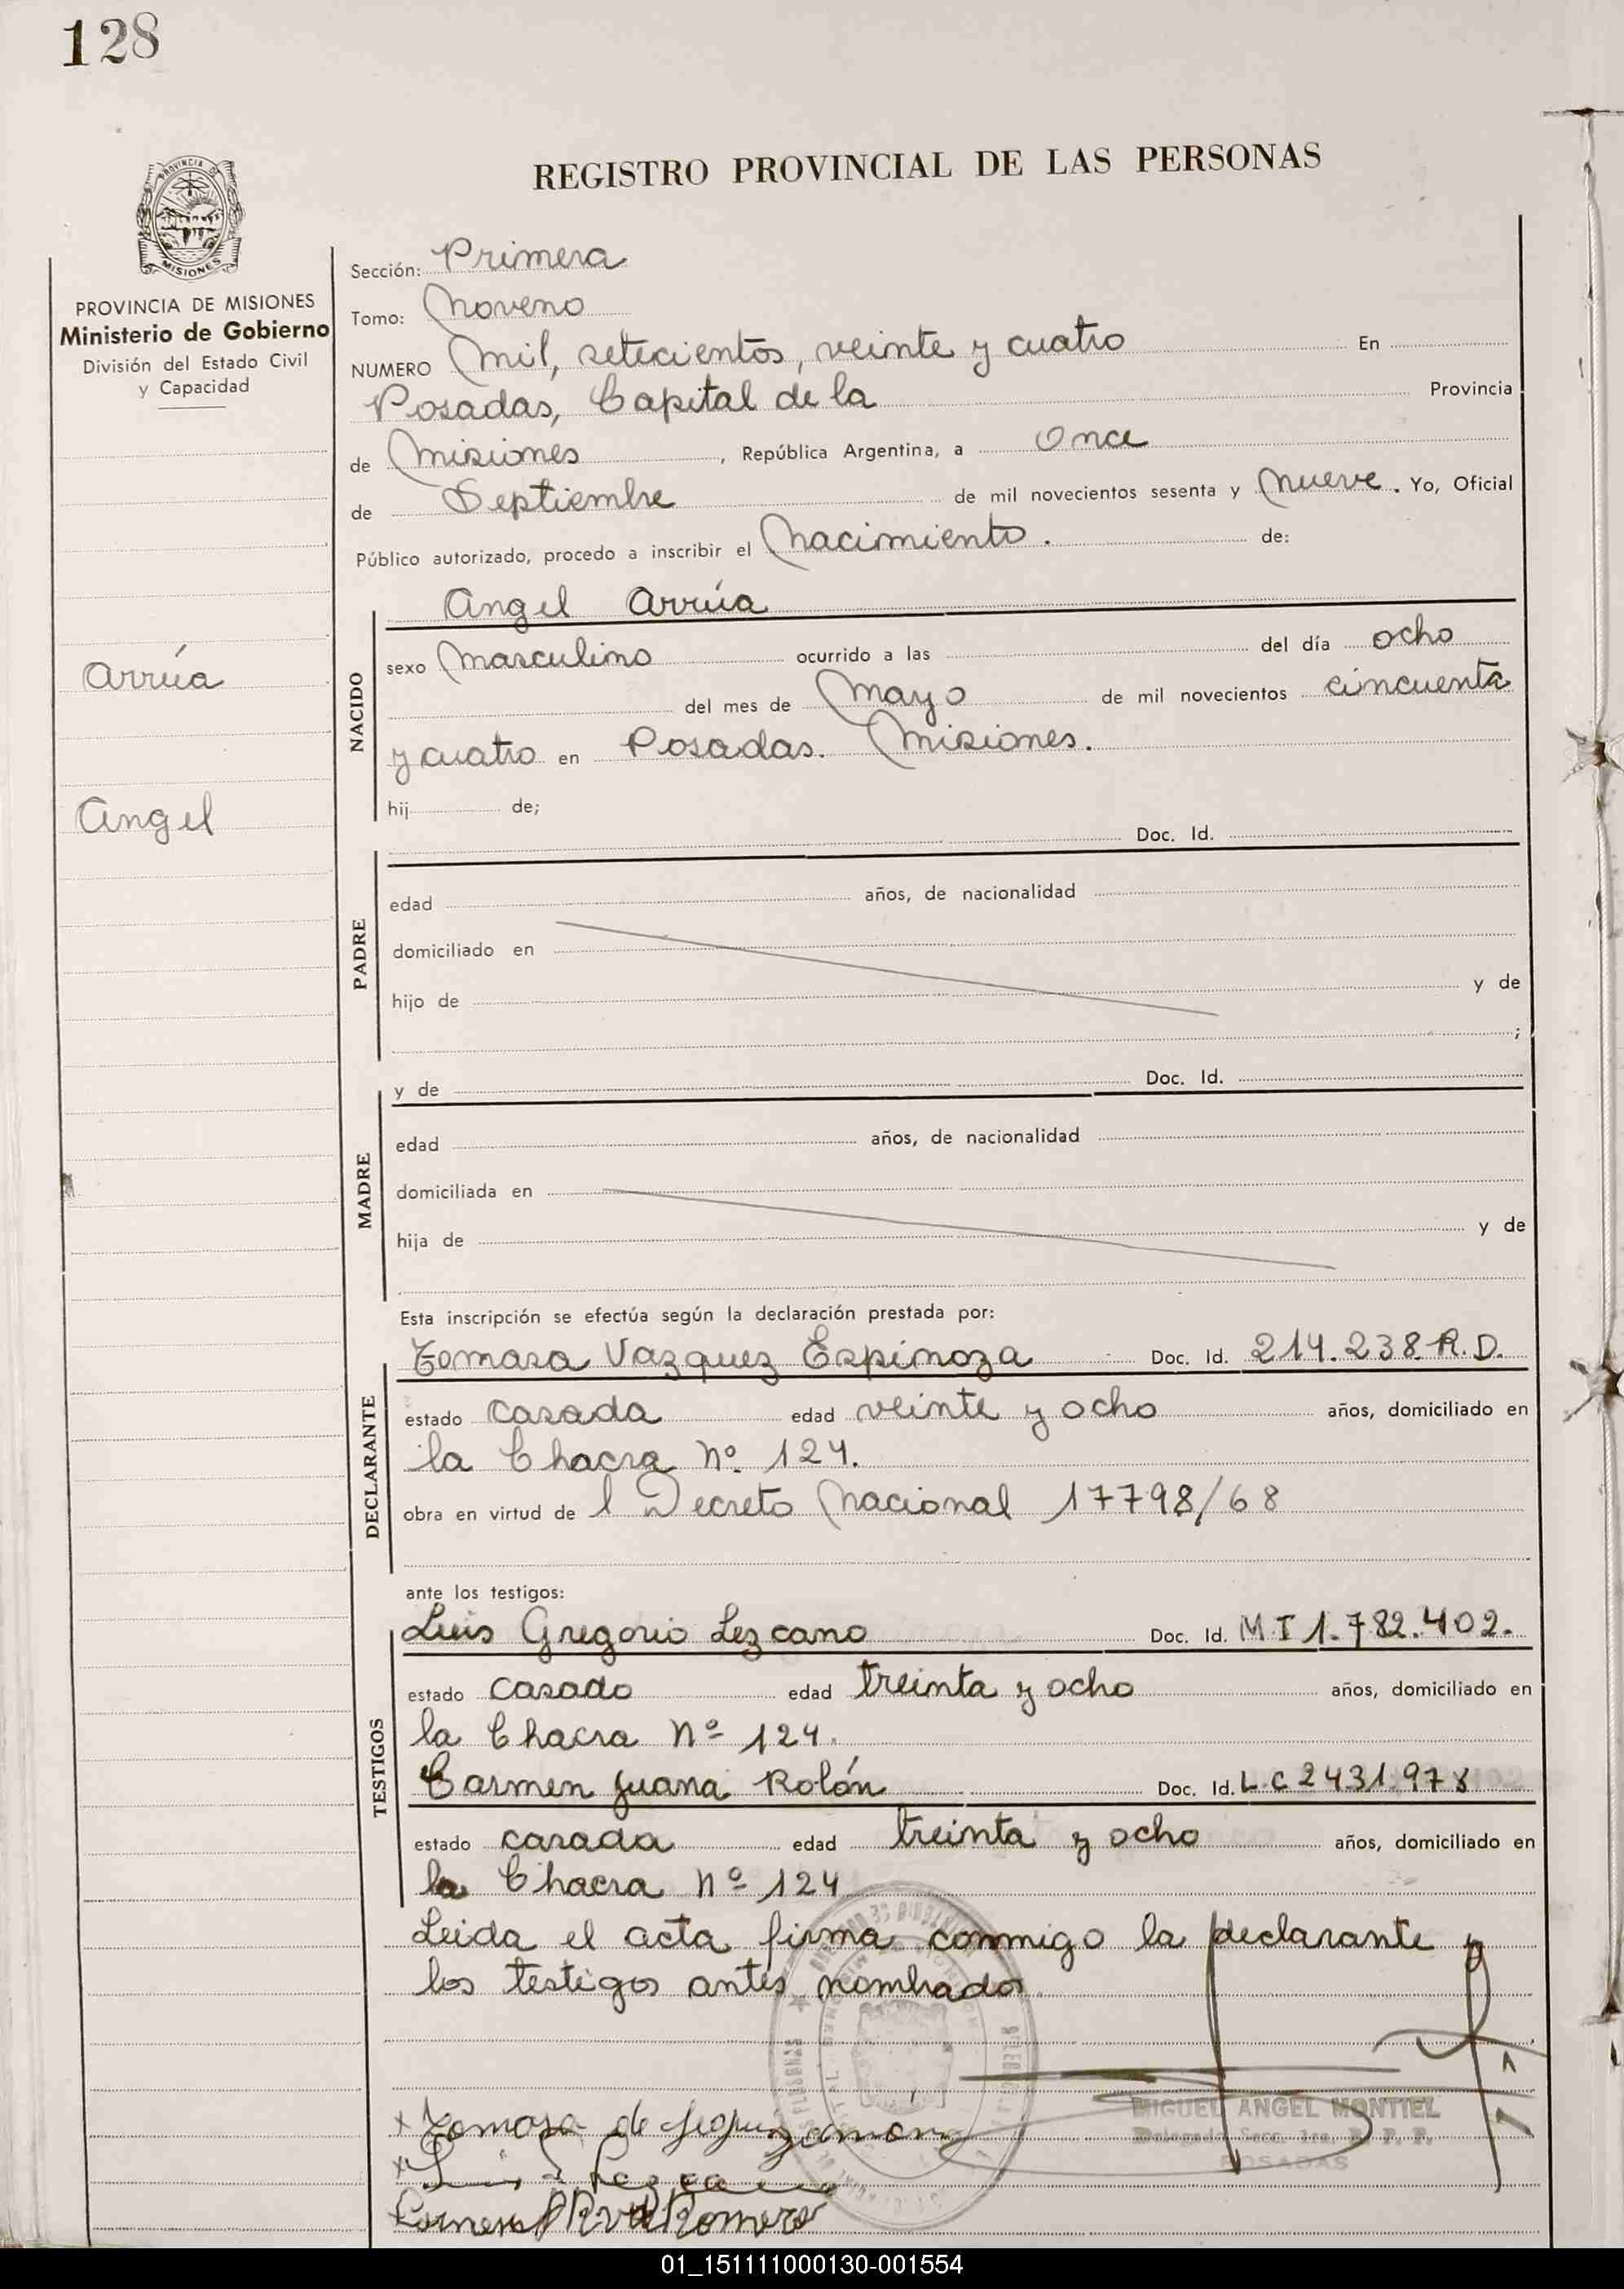 128
REGISTRO PROVINCIAL DE LAS PERSONAS
PROVINCIA DE MISIONES
PROVINCIA DE MISIONES
Ministerio de Gobierno
División del Estado Civil
y Capacidad
Arrúa
Angel
Sección: Primera
Tomo: Noveno
NUMERO Mil, setecientos, veinte y cuatro En
Posadas, Capital de la Provincia
de Misiones, República Argentina, a Once
de Septiembre de mil novecientos sesenta y Nueve. Yo, Oficial
Público autorizado, procedo a inscribir el Nacimiento. de:
Angel Arrúa
NACIDO
sexo Masculino ocurrido a las del día ocho
del mes de Mayo de mil novecientos cincuenta
y cuatro en Posadas. Misiones.
hij de;
Doc. Id.
PADRE
edad años, de nacionalidad
domiciliado en
hijo de y de
;
y de Doc. Id.
MADRE
edad años, de nacionalidad
domiciliada en
hija de y de
Esta inscripción se efectúa según la declaración prestada por:
Tomasa Vazquez Espinoza Doc. Id. 214.238.R.D.
DECLARANTE
estado casada edad veinte y ocho años, domiciliado en
la Chacra Nº. 124.
obra en virtud de l Decreto Nacional 17798/68
ante los testigos:
Luis Gregorio Lezcano Doc. Id. M I 1.782.402.
TESTIGOS
estado casado edad treinta y ocho años, domiciliado en
la Chacra Nº 124.
Carmen Juana Rolón Doc. Id. L.C 2431.978
estado casada edad treinta y ocho años, domiciliado en
la Chacra Nº 124
Leida el acta firma conmigo la declarante y
los testigos antes nombrados
MIGUEL ANGEL MONTIEL
Delegado Secc. 1ra. R. P. P.
POSADAS
x Tomasa de
01_151111000130-001554